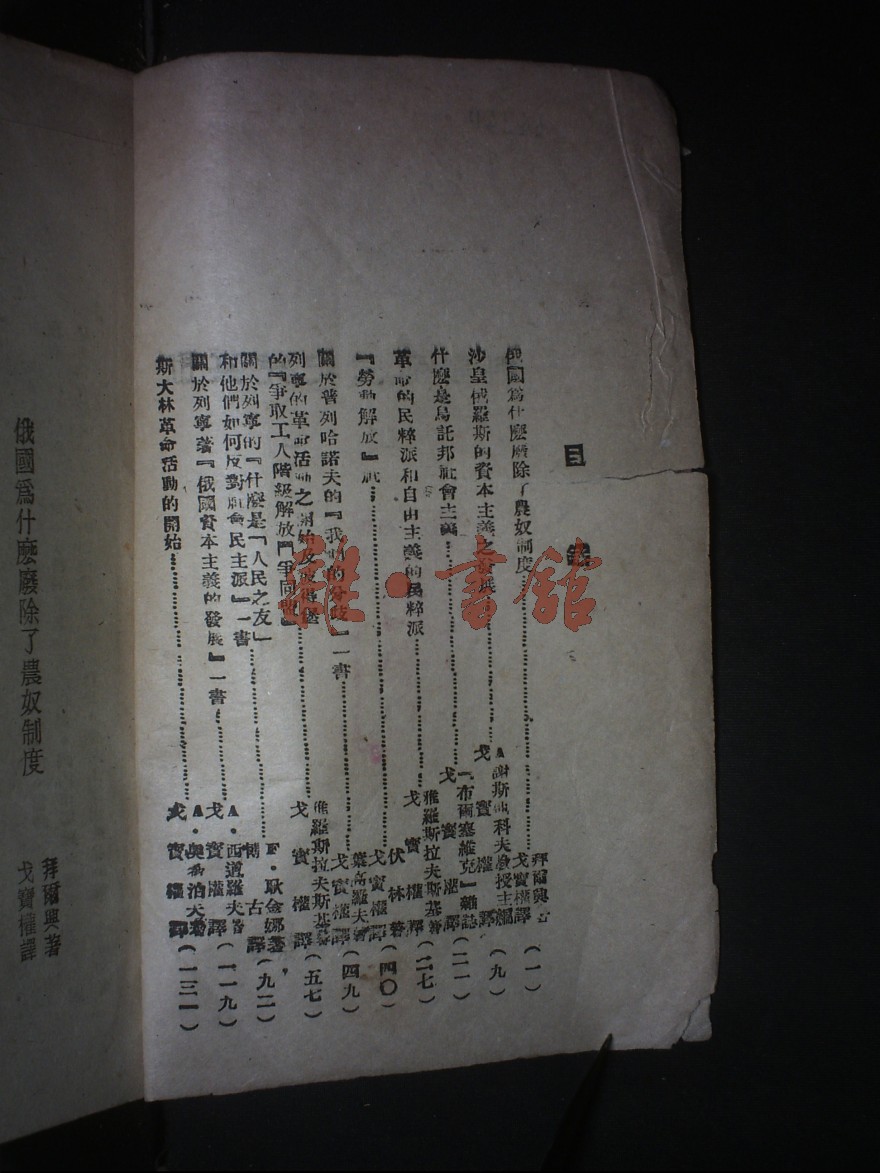 目錄
俄國爲什麼廢除了農奴制度
拜爾興著
戈寶權譯
(一)
沙皇俄羅斯的資本主義之發展
戈寶權譯
(九)
什麼是烏託邦社會主義
『布爾塞維克』雜誌
戈寶權譯
(二一)
革命的民粹派和自由主義的民粹派
雅羅斯拉夫斯基著
戈寶權譯
(二七)
『勞動解放』社
伏林著
戈寶權譯
(四〇)
關於普列哈諾夫的『我們的分歧』一書
葉高羅夫著
戈寶權譯
(四九)
列寧的革命活動之開始及彼得堡
的『爭取工人階級解放鬥爭同盟』
雅羅斯拉夫斯基著
戈寶權譯
(五七)
關於列寧的『什麼是「人民之友」
和他們如何反對社會民主派』一書
F·耿金娜著
博古譯
(九二)
關於列寧著『俄國資本主義的發展』一書
A·西道羅夫著
戈寶權譯
(一一九)
斯大林革命活動的開始
戈寶權譯
(一三一)
俄國爲什麼廢除了農奴制度
拜爾興著
戈寶權譯
雜·書館